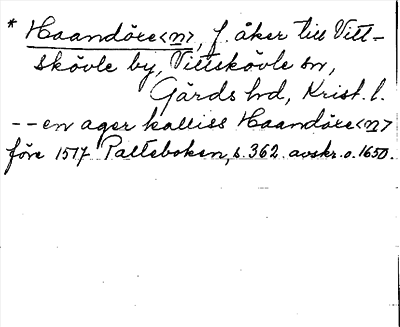 * Haandöre<n>, f. åker till Vitt-
skövle by, Vittskövle sn,
Gärds hd, Krist. l.
-- en ager kalliss Haandöre<n>
före 1517 Palteboken, s. 362. avskr. o. 1650.